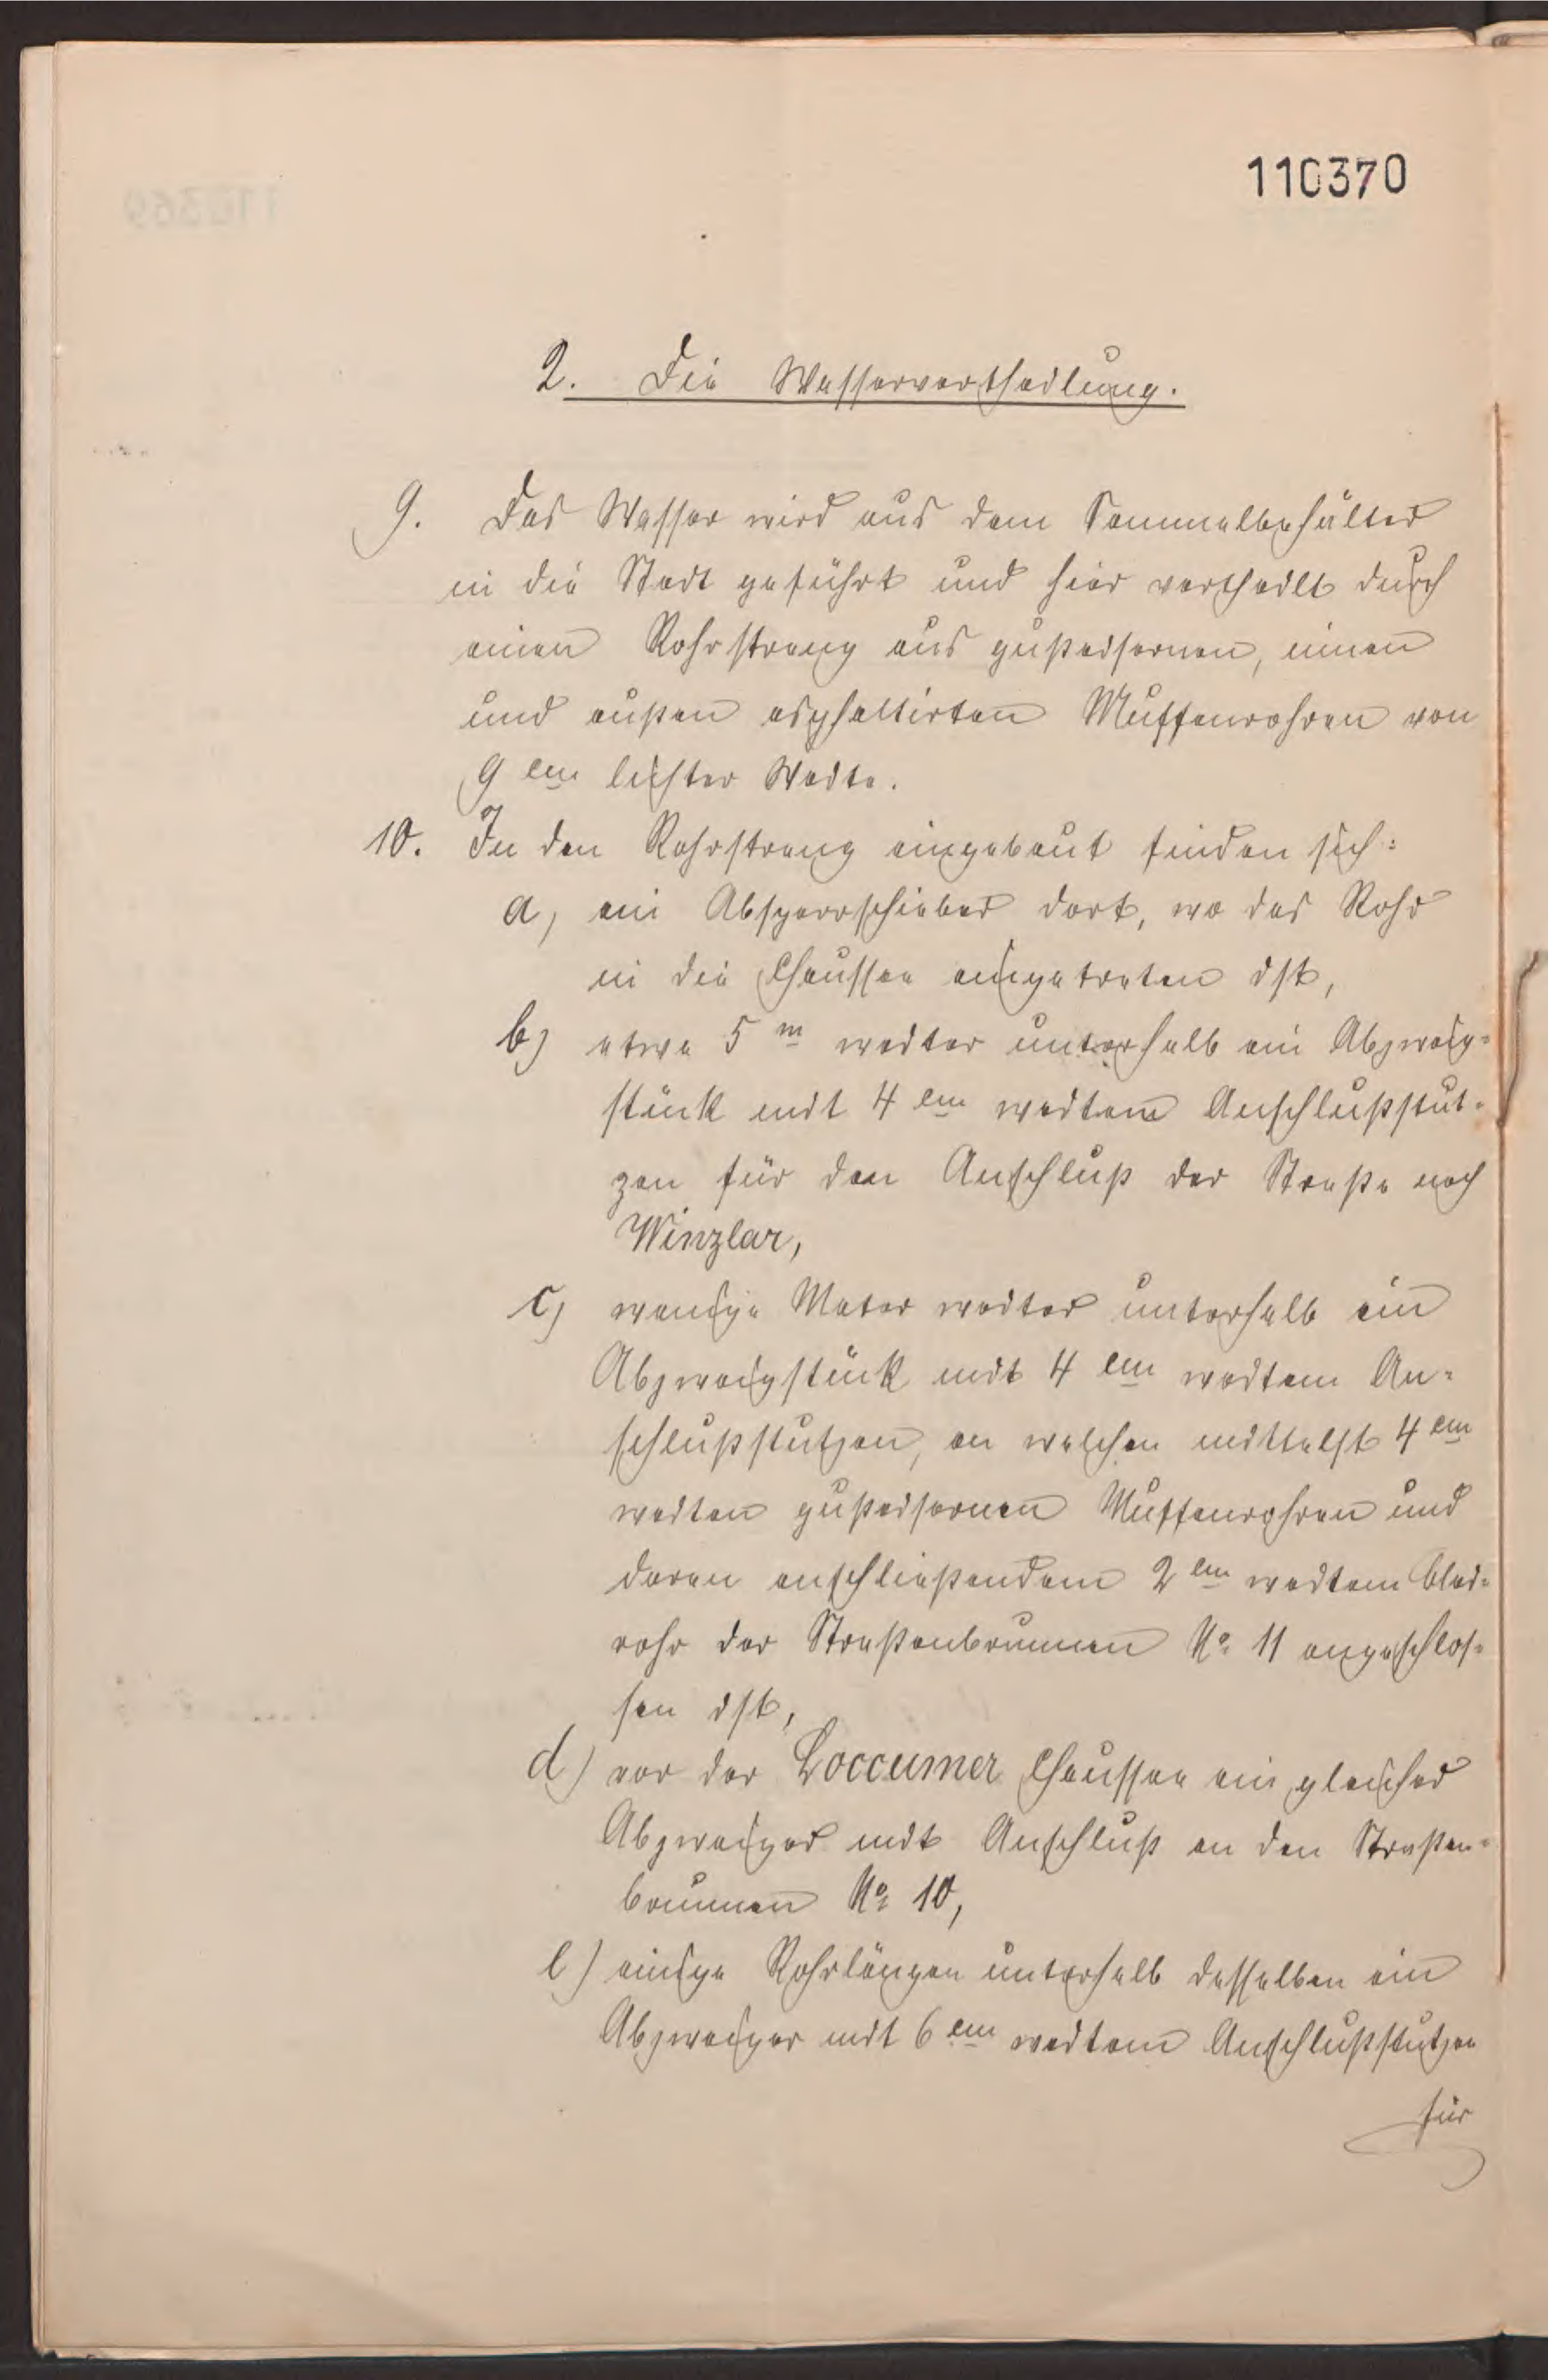 110370
2. Die Wasservertheilung.
9. Das Wasser wird aus dem Sammelbehälter
in die Stadt geführt und hier vertheilt durch
einen Rohrstrang aus gußeisernen, innen
und außen asphaltirten Muffenrohren von
9 cm lichter Weite.
10. In den Rohrstrang eingebaut finden sich:
a) ein Absperrschieber dort, wo das Rohr
in die Chaussee eingetreten ist,
b) etwa 5 m weiter unterhalb ein Abzweig=
stück mit 4 cm weitem Anschlußstut=
zen für den Anschluß der Straße nach
Winzlar,
c) wenige Meter weiter unterhalb ein
Abzweigstück mit 4 cm weitem An=
schlußstutzen, an welchen mittelst 4 cm
weiten gußeisernen Muffenrohren und
daran anschließendem 2 cm weitem Blei=
rohr der Straßenbrunnen No 11 angeschlos=
sen ist,
d) vor der Loccumer Chaussee ein gleicher
Abzweiger mit Anschluß an den Straßen=
brunnen No 10,
e) einige Rohrlängen unterhalb desselben ein
Abzweiger mit 6 cm weitem Anschlußstutzen
für